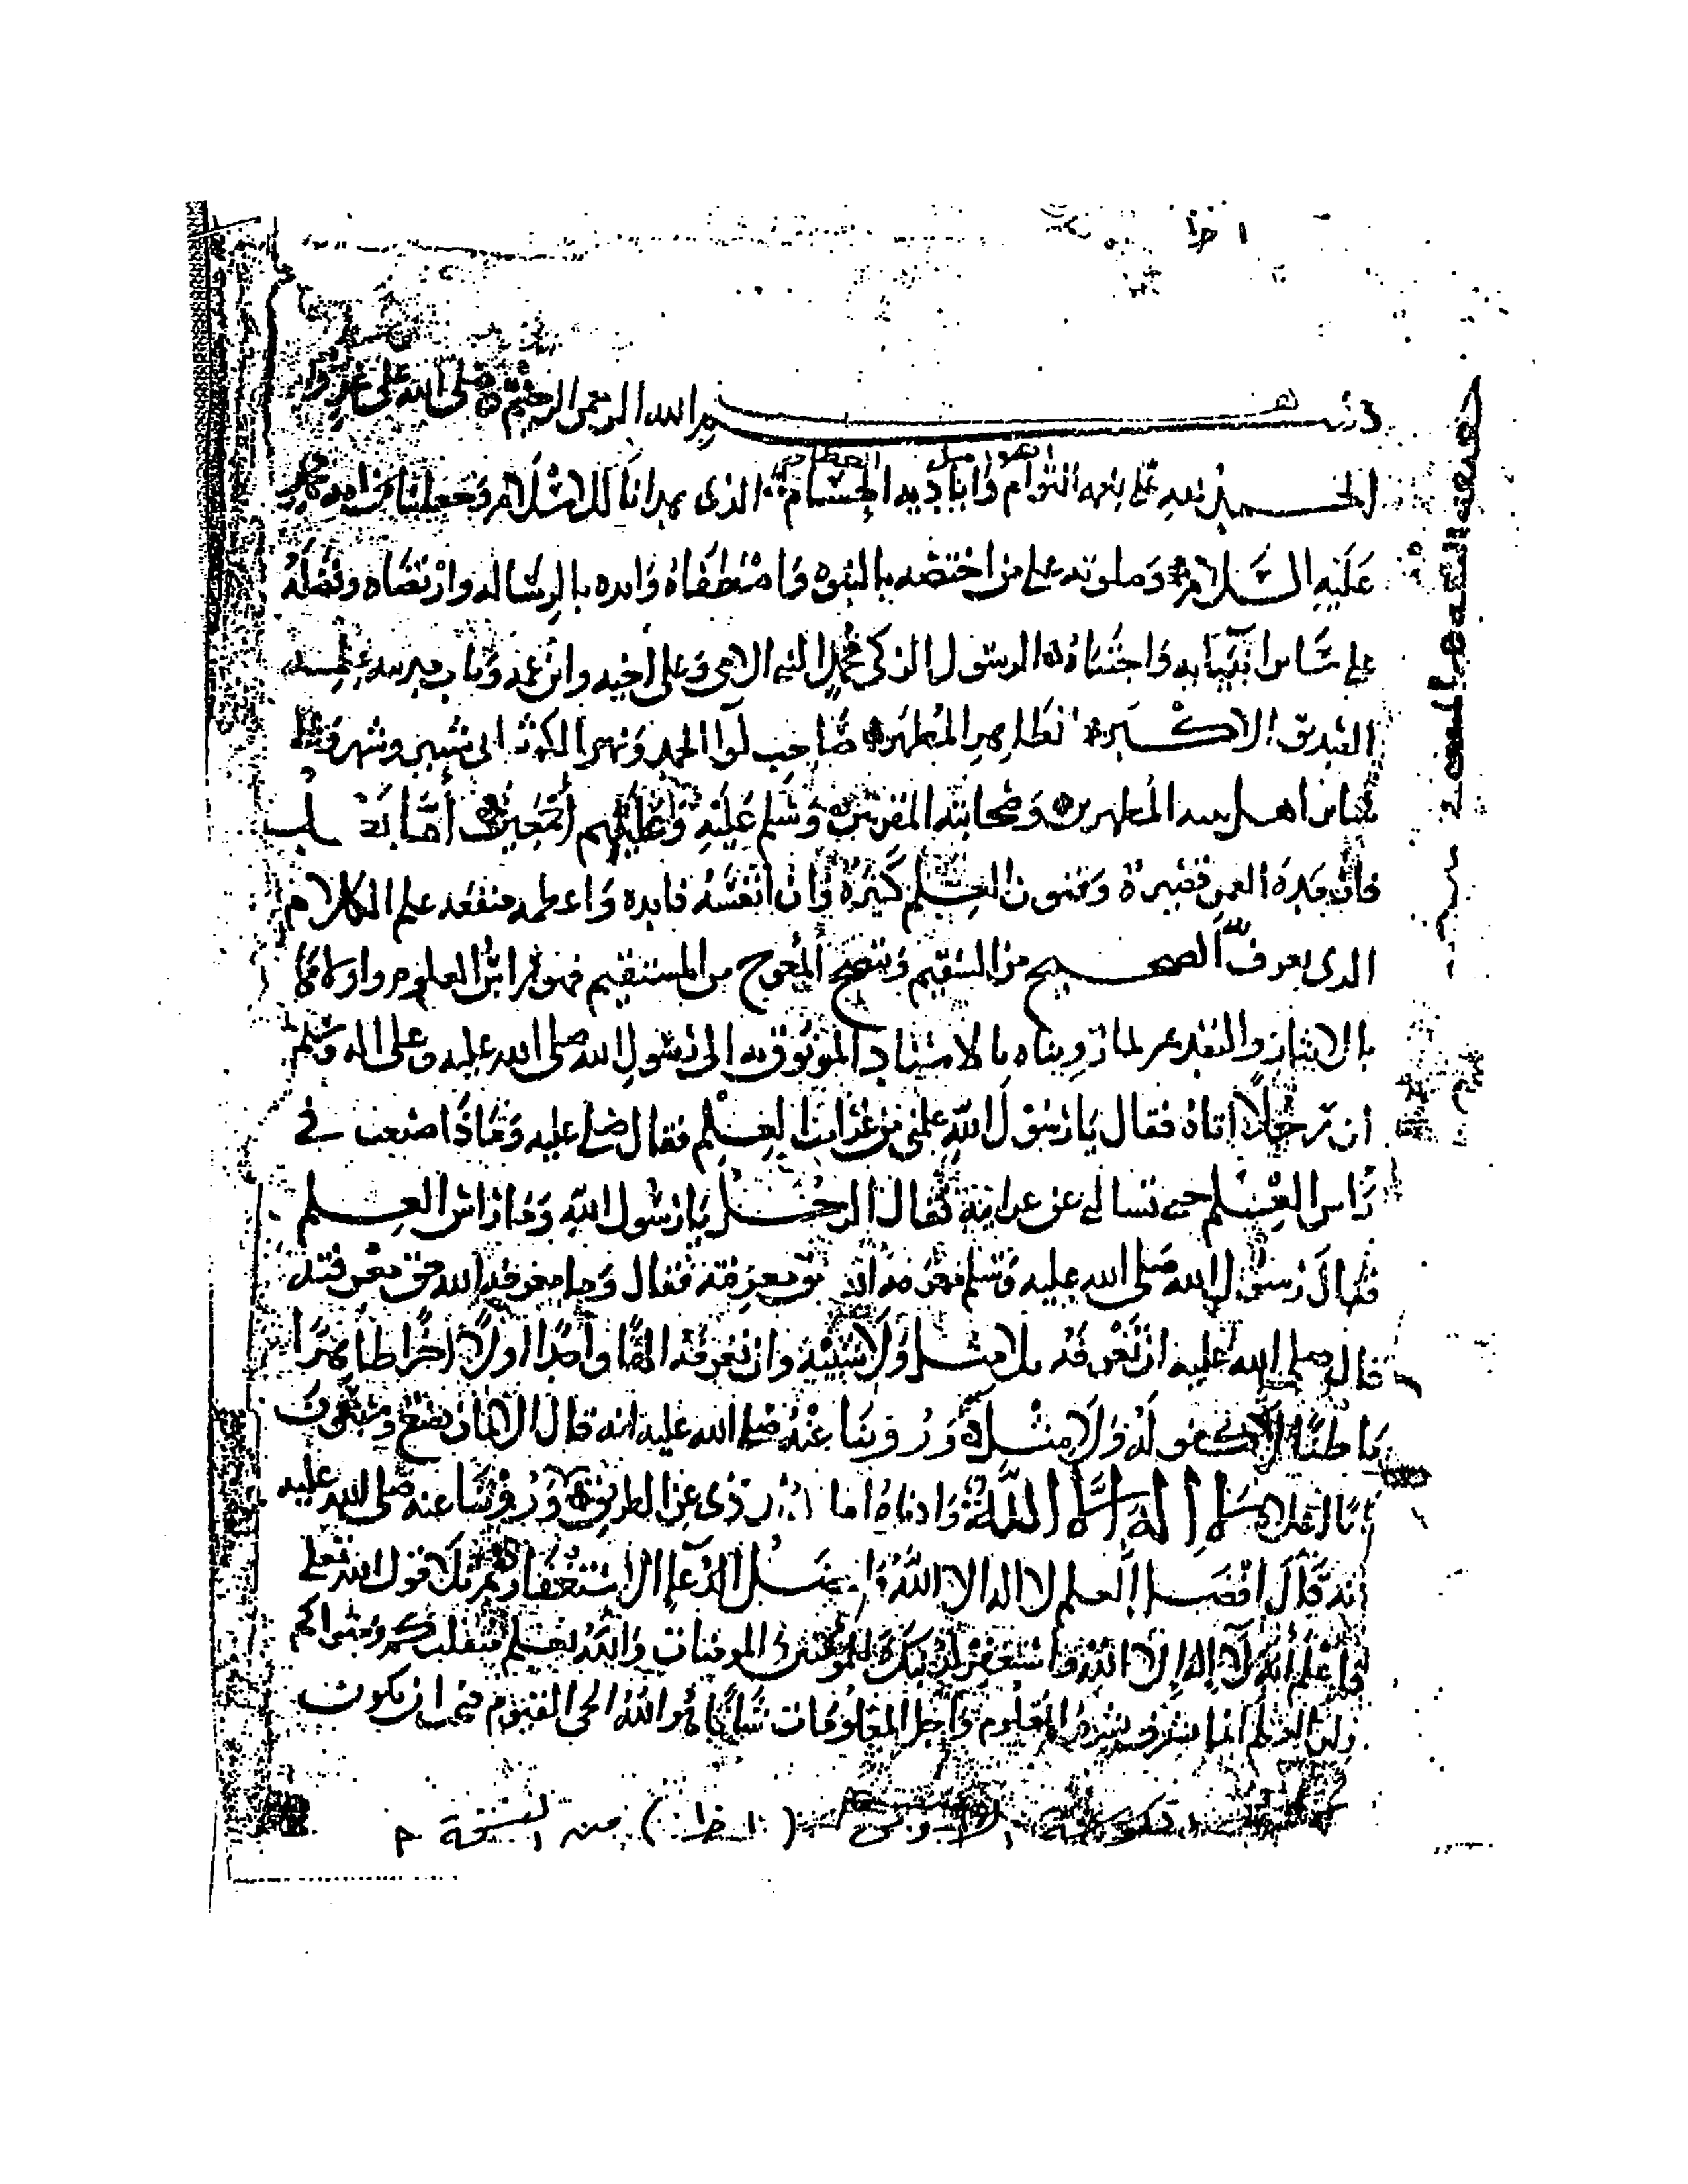 بسم الله الرحمن الرحيم صلى الله على
الحمد لله على نعمه التوام واياديه الجسام الذى هدانا للاسلام وجعلنا من امه محمد
عليه السلام وصلوته على من اختصه بالنبوه واصطفاه وايده بالرساله وارتضاه وفضله
على سائر انبيايه واجتباه الرسول الزكى محمد النبى الامى وعلى اخيه وابن عمه وباب مدينه علمه
الصديق الاكبر الطاهر المطهر صاحب لوا الحمد ونهر الكوثر ابى شبير وشبر وعلى
سائر اهل بيته المطهرين وصحابته المقربين وسلم عليه وعليهم أجمعين أما بعد
فان مده العمر قصيرة وفنون العلم كثيرة وان انفسه فايده واعظمه منفعه علم الكلام
الذى يعرف به الصحيح من السقيم ويتضح المعوج من المستقيم فهو راس العلوم واولاها
بالايثار والتقديم لما رويناه بالاسناد الموثوق به الى رسول الله صلى الله عليه وعلى اله وسلم
ان رجلا اتاه فقال يا رسول الله علمنى من غرائب العلم فقال صلى عليه وماذا صنعت في
راس العلم حتى تسالنى عن غرايبه فقال الرجل يا رسول الله وما راس العلم
فقال رسول الله صلى الله عليه وسلم معرفه الله حق معرفته فقال وما معرفه الله حق معرفته
قال صلى الله عليه ان تعرفه بلا مثل ولا شبيه وان تعرفه الها واحدا اولا اخرا ظاهرا
باطنا لا كفو له ولا مثل له وروينا عنه صلى الله عليه انه قال الايمان بضع وسبعون
بابا اعلاه لا إله إلا الله وادناه اماطه الاذى عن الطريق وروينا عنه صلى الله عليه
انه قال افضل العلم لا اله الا الله وافضل الدعا الاستغفار ثم تلا قول الله تعلى
فاعلم أنه لا إله إلا الله واستغفر لذنبك وللمؤمنين والمومنات والله يعلم متقلبكم ومثواكم
ولان العلم انما يشرف بشرف المعلوم واجل المعلومات شانا هو الله الحى القيوم فيجب ان يكون
الأولى ( ١ ظ ) من النسخة م